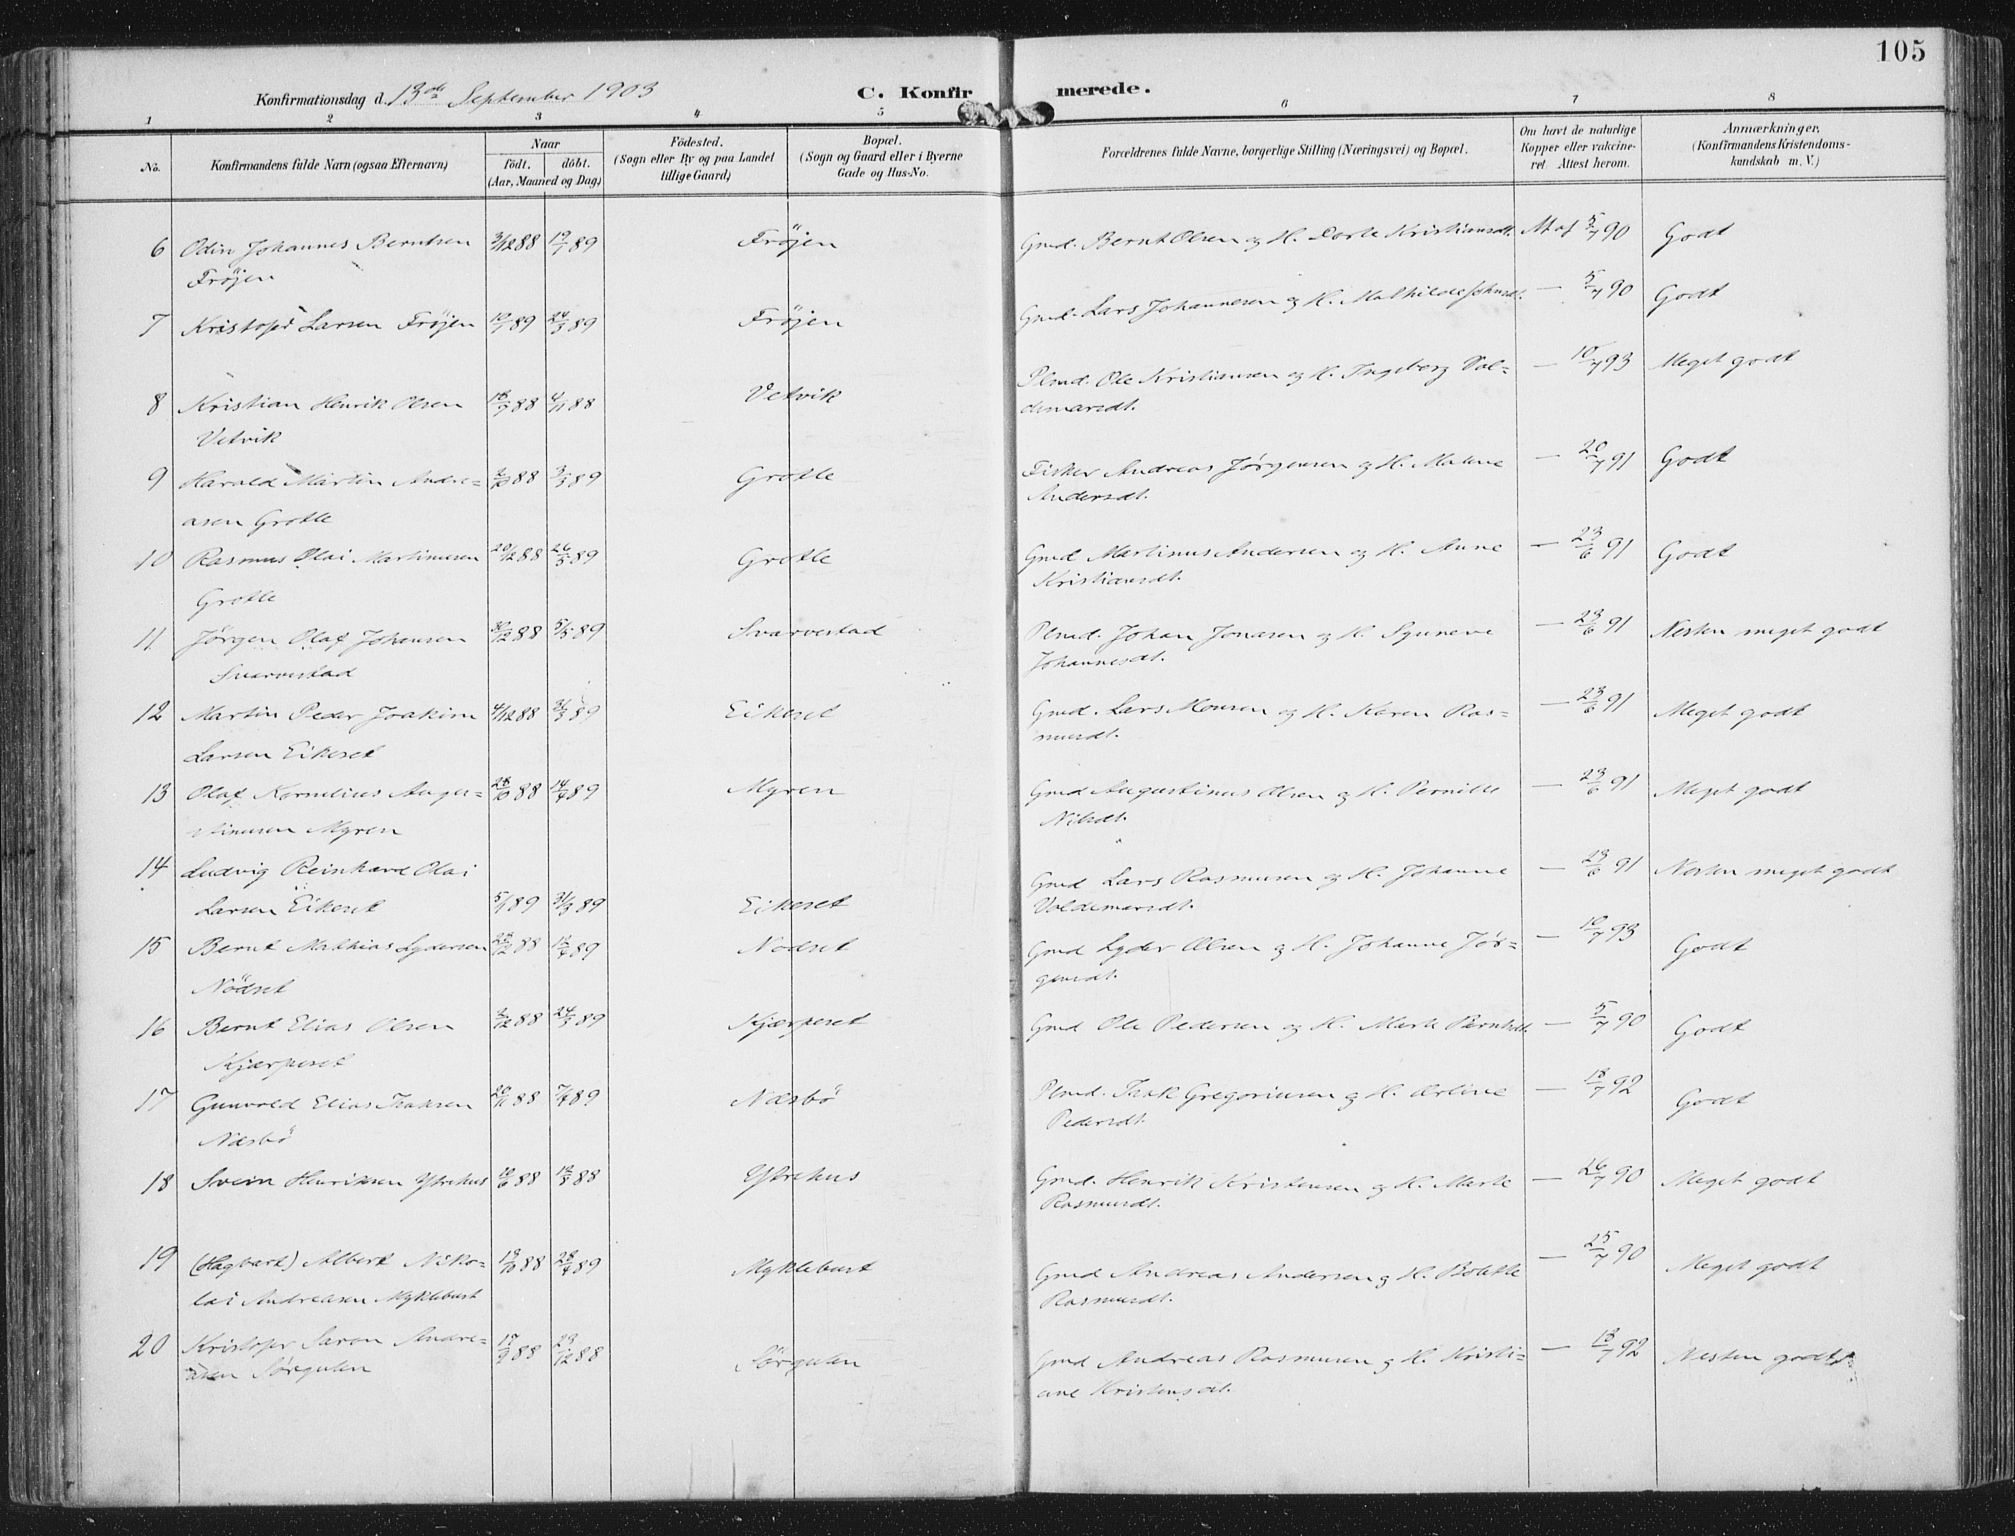 105
Konfirmationsdag d. 13de September 1903 C. Konfirmerede.
1 2 3 4 5 6 7 8
No. Konfirmandens fulde Navn (ogsaa Efternavn) Naar födt. döbt. (Aar, Maaned og Dag) Födested. (Sogn eller By og paa Landet tillige Gaard) Bopæl. (Sogn og Gaard eller i Byerne Gade og Hus-No. Forældrenes fulde Navne, borgerlige Stilling (Næringsvei) og Bopæl. Om havt de naturlige Kopper eller vakcineret. Attest herom. Anmærkninger. (Konfirmandens Kristendomskundskab m. V.)
6 Odin Johannes Berntsen 3/12 88 19/1 89 Fröjen Gmd. Bernt Olsen og H. Dorte Kristiansdt. At af 5/7 90 Godt
Fröjen
7 Kristofer Larsen Fröjen 10/1 89 24/3 89 Fröjen Gmd. Lars Johannesen og H. Mathilde Johnsdt. — 5/7 90 Godt
8 Kristian Henrik Olsen 18/9 88 4/11 88 Vetvik Plmd. Ole Kristiansen og H. Ingeborg Val=
Vetvik demarsdt. — 10/7 93 Meget godt
9 Harald Martin Andre= 2/10 88 3/3 89 Grotle Fisker Andreas Jørgensen og H. Malene — 20/7 91 Godt
asen Grotle Andersdt.
10 Rasmus Olai Martinusen 20/12 88 26/5 89 Grotle Gmd Martinus Andersen og H. Anne — 23/6 91 Godt
Grotle Kristiansdt.
11 Jörgen Olaf Johansen 30/12 88 5/5 89 Svarvestad Plmd. Johan Jonasen og H. Synneve — 23/6 91 Nesten meget godt
Svarvestad Johannesdt.
12 Martin Peder Joakim 4/12 88 31/3 89 Eikeset Gmd. Lars Monsen og H. Karen Ras= — 23/6 91 Meget godt
Larsen Eikeset musdt.
13 Olaf Kornelius Augu= 28/10 88 14/4 89 Myren Gmd Augustinus Olsen og H. Pernille — 23/6 91 Meget godt
stinusen Myren Nilsdt.
14 Ludvig Reinhard Olai
Larsen Eikeset 5/1 89 31/3 89 Eikeset Gmd Lars Rasmusen og H. Johanne — 23/6 91 Nesten meget godt
Voldemarsdt.
15 Bernt Mathias Lydersen 28/12 88 12/4 89 Nödset Gmd Lyder Olsen og H. Johanne Jør= — 10/7 93 Godt
Nödset gensdt.
16 Bernt Elias Olsen 2/12 88 24/3 89 Kjærpeset Gmd Ole Pedersen og H. Marte Berntsdt. — 5/7 90 Godt
Kjærpeset
17 Gunvald Elias Isaksen 20/11 88 7/4 89 Næsbö Plmd. Isak Gregoriusen og H. — 18/7 92 Godt
Næsbö Pedersdt.
18 Svein Henriksen Ytrehus 10/6 88 12/8 88 Ytrehus Gmd. Henrik Kristensen og H. Marte — 26/7 90 Meget godt
Rasmusdt.
19 (Hagbart) Albert Niko= 13/10 88 28/4 89 Myklebust Gmd Andreas Andersen og H. Bolette — 25/7 90 Meget godt
lai Andreasen Myklebust Rasmusdt.
20 Kristofer Saron Andre= 17/9 88 23/12 88 Sörgulen Gmd Andreas Rasmusen og H. Kristi= — 18/7 92 Nesten godt
asen Sørgulen ane Kristensdt.